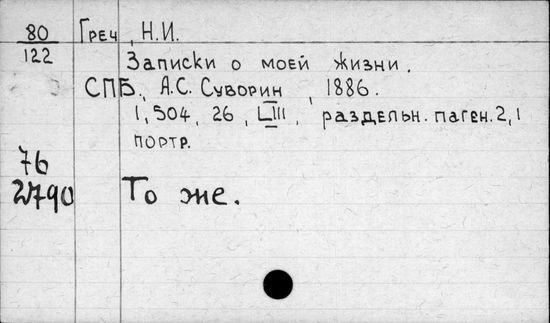 80 Греч, Н.И.
122 Записки о моей жизни.
СПБ., А.С. Суворин, 1886.
1, 504, 26, LIII, раздельн. паген. 2, 1
портр.
76
2790 То же.